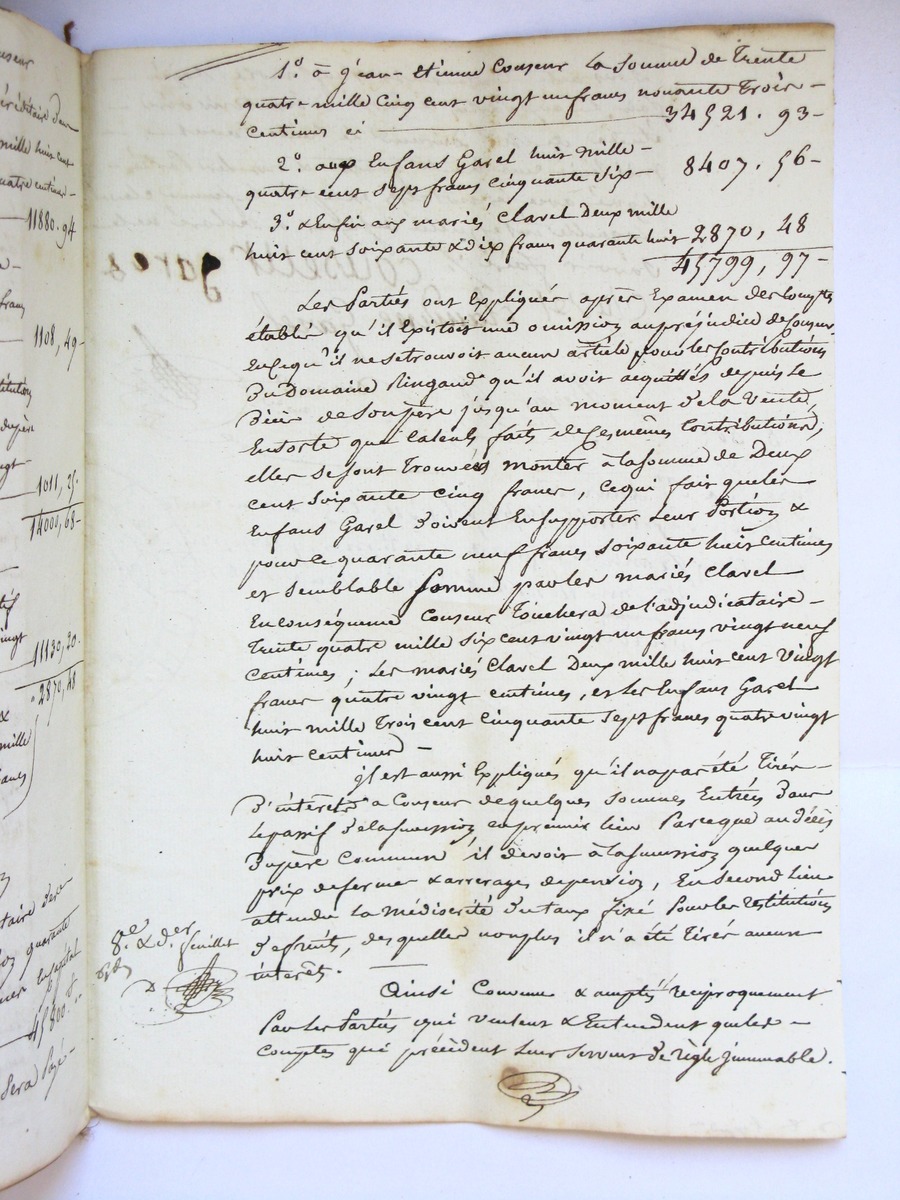 useur
éréditaire d'un
mille huit cent
quatre centimes -
11880. 94
francs
1108, 49 -
titution
du père
ngt -
1011, 25.
14000, 68 -
tif
vingt
11130, 20.
2870, 48
&
mille
taire des
quarante
en capital
41800. "
sera payé -
1.° à Jean-Etienne Couseur la somme de Trente
quatre mille cinq cent vingt un francs nonante Trois -
centimes ci 34521. 93 -
2.° aux Enfans Garel huit mille -
quatre cent sept francs cinquante six - 8407. 56 -
3.° & Enfin aux mariés Clarel Deux mille
huit cent soixante & dix francs quarante huit 2870, 48
45799, 97 -
Les Partiés ont Expliquée après Examen des Comptes
établis qu'il Existoit une omission au préjudice de Couseur
En ce qu'il ne se trouvoit aucun article pour les Contributions
Du Domaine Ringaud qu'il avoit acquittés depuis le
Décès de Son père jusqu'au moment de la Vente,
En sorte que calculs faits de Ces mêmes Contributions,
elles se sont Trouvées monter à la somme de Deux
cent soixante cinq francs, ce qui fait que les
Enfans Garel doivent En supporter leur Portion &
pour ce quarante neuf francs soixante huit centimes
et semblable somme par les mariés Clarel
En conséquence Couseur Touchera de l'adjudicataire -
Trente quatre mille six cent vingt un francs vingt neuf
centimes ; Les mariés Clarel Deux mille huit cent vingt
francs quatre vingt centimes, et les Enfans Garel
huit mille Trois cent cinquante sept francs quatre vingt
huit centimes -
Il est aussi Expliqués qu'il n'a pas été Tirés -
D'intérêts a Couseur de quelques sommes Entrées dans
le passif de la succession, en premier lieu Parce que au décès
Du père Commun il devoit à la succession quelques
prix de ferme & arrerages de pension, En second lieu
attendu la médiocrité du taux fixé Pour les restitutions
de fruits, des quelles non plus il n'a été Tirés aucun
intérêts. -
Ainsi Convenu & accepté réciproquement
Par les Partiés qui veulent & Entendent que les -
comptes qui précèdent leur servent de règle immuable.
8.e & d.er feuillet